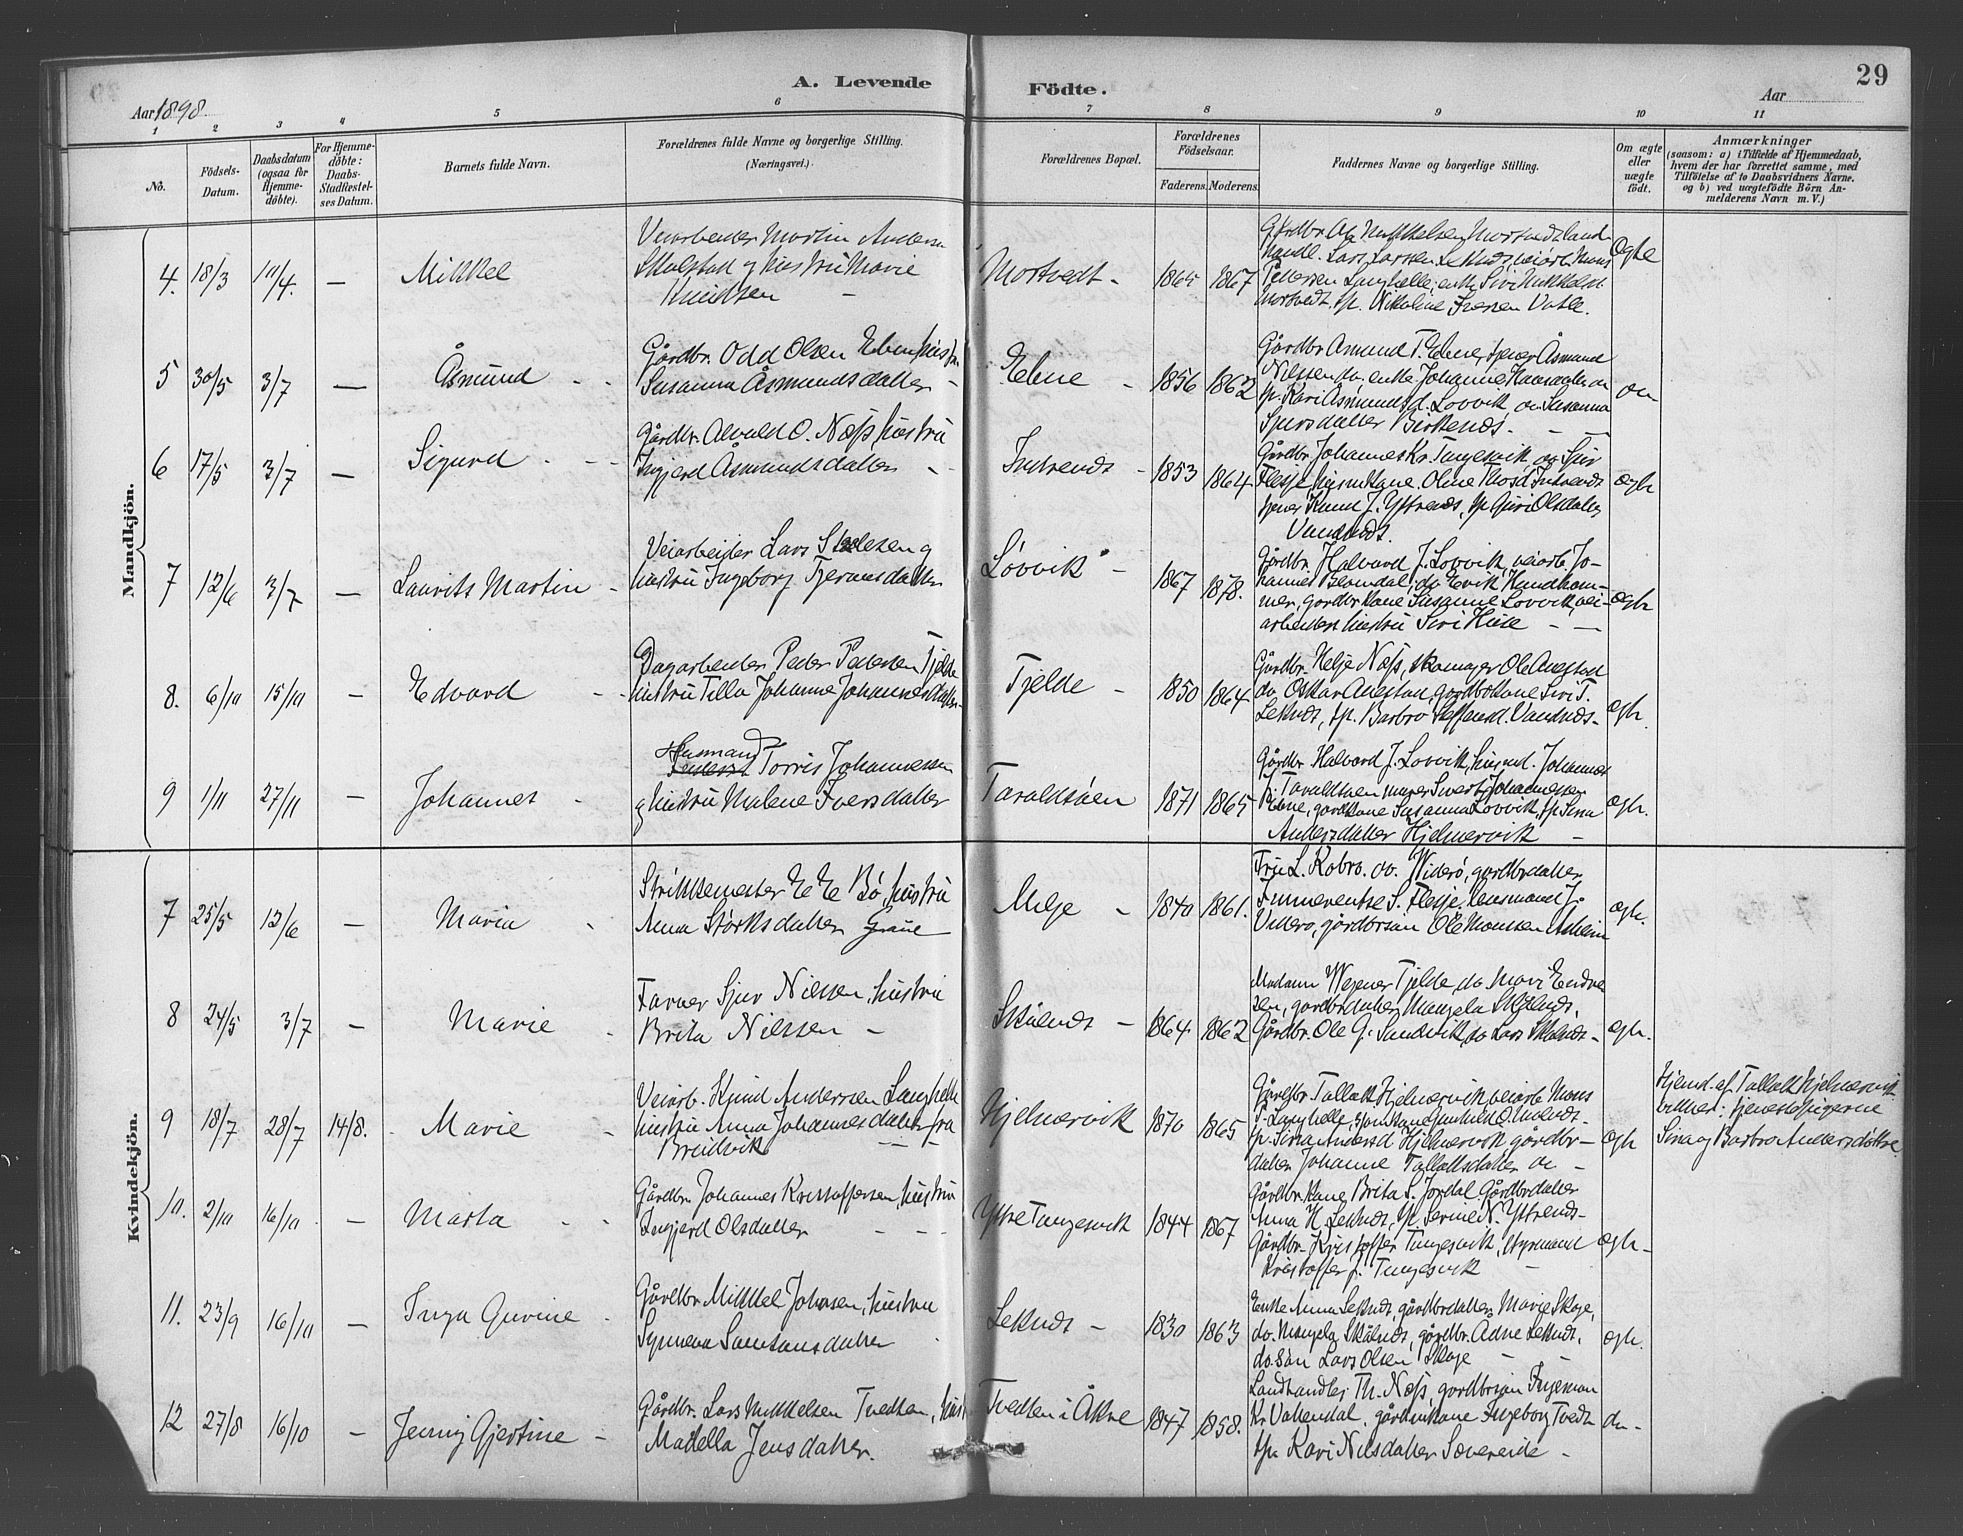 A. Levende
Födte.
29
Aar 1898
Aar
1 2 3 4 5 6 7 8 9 10 11
No.
Födsels-Datum.
Daabsdatum (ogsaa for Hjemme-döbte).
For Hjemme-döbte: Daabs-Stadfæstel-ses Datum.
Barnets fulde Navn.
Forældrenes fulde Navne og borgerlige Stilling.
(Næringsvei.)
Forældrenes Bopæl.
Forældrenes Födselsaar.
Faderens. Moderens.
Faddernes Navne og borgerlige Stilling.
Om ægte eller uægte födt.
Anmærkninger
(saasom: a) i Tilfælde af Hjemmedaab,
hvem der har forrettet samme, med
Tilföielse af to Daabsvidners Navne.
og b) ved uægtefödte Börn An-
melderens Navn m. V.)
Mandkjön.
4. 18/3 11/4. — Mikkel
Veiarbeider Martin Anders
Skulstad og hustru Marie
Knudsen
Mortvedt - 1865 1867
Ægte
5 30/5 3/7 — Åsmund
Gårdbr. Odd Olsen Ebne, hustru
Susanna Åsmundsdatter
Ebne - 1856 1862
Gårdbr Åsmund T. Ebne, tjener Åsmund
Nilssen do, enke Johanne
tp. Kari Åsmundsd. Løvvik, Susanna
Sjursdatter Birkenes.
6 17/5 3/7 — Sigurd
Gårdbr. Alvald O. Næss hustru
Ingjerd Åsmundsdatter
Indrenæs - 1853 1864
Gårdbr. Johannes Kr. Tungesvik, Sjur
Flesje
tjener Knud J. Yttrenæs, tp Guri Olsdatter
Vandnæs.
ægte
7 12/6 3/7 — Laurits Martin
Veiarbeider Lars og
hustru Ingeborg
Løvvik - 1867 1878.
Gårdbr. Halvard J. Løvvik, veiarb. Jo-
hannes Blomdal, do Erik Hundham-
mer, gårdbr kone Susanne Løvvik, vei-
arbeiders hustru Siri Huse
ægte
8. 6/10 15/10 — Edvard
Dagarbeider Peder Pedersen Tjelde
hustru Tilla Johanne Johannesdatter
Tjelde - 1850 1864
Gårdbr. Helje Næss, skomager Ole Anestad
do Oskar Anestad, gårdbrkone Siri T.
Leknæs, tp. Barbro Steffensd. Vandnæs-
ægte
9 1/11 27/11 — Johannes
Husmand
Torris Johannessen
og hustru Malene Iversdatter
Taraldsøen 1871 1865
Gårdbr Halvard J. Løvvik, husmd. Johannes
Taraldsøen, murer Sivert Johannessen
Ebne, gårdbrkone Susanna Løvvik, tp Sina
Andersdatter Hjelmervik
ægte.
Kvindekjön.
7 25/5 12/6 — Maria
Strikkemester E E Bø, hustru
Anna Størksdatter Graue
Melje - 1840 1861.
Fru L. Kobro. Widerø, gårdbrdatter
S. Flesje, husmand J.
Viderø, gårdbrsøn Ole Monssen Asheim
ægte.
8 24/5 3/7 — Marie
Farver Sjur Nilssen, hustru
Brita Nilssen
Skålnæs - 1864 1862
Madam Wegner Tjelde, do Mari Endre-
sen, gårdbrdatter Mangela Skålnæs,
Gårdbr. Ole G. Sandvik, do Lars Skålnæs-
ægte.
9 18/7 28/7 14/8. Marie
Veiarb. Knud Andersen Langhelle
hustru Anna Johannesdatter fra
Breidvik
Hjelmervik 1870 1865
Gårdbr. Tallak Hjelmervik, veiarb Mons
T. Langhelle,
tp. Sina Andersd Hjelmervik gårdbr-
datter Johanne Tallaksdatter
ægte
Hjemd. af Tallak Hjelmervik
vidner: tjenestepigerne
Sina og Barbro Andersdøttre.
10. 2/10 16/10 — Marta
Gårdbr. Johannes Kristoffersen, hustru
Ingjerd Olsdatter
Ytre Tungesvik 1844 1867
Gårdbr. kone Brita S. Jordal, Gårdbrdatter
Anna H. Leknæs, tp. Serine N. Yttrenæs-
Gårdbr. Kristoffer Tungesvik, styrmand
Kristoffer J. Tungesvik
ægte-
11. 23/9 16/10 — Inga Gurine
Gårdbr. Mikkel Johnsen, hustru
Synneva Samsonsdatter
Leknæs - 1830 1863
Enke Anna Leknæs, gårdbrdatter Marie Skoje,
do. Mangela Skålnæs, gårdbr. Adne Leknæs,
do søn Lars Olsen Skoje
ægte.
12 27/8 16/10 — Jenny Gjertine -
Gårdbr. Lars Mikkelsen Tvedten, hust
Madella Jensdatter.
Tvedten i Åkre 1847 1858.
Landhandler Th. Næss, gårdbrsøn Ingeman
Kr Vattendal, gårdbrkone Ingeborg Tvedt
tp. Kari Nilsdatter Sævereide -
do-